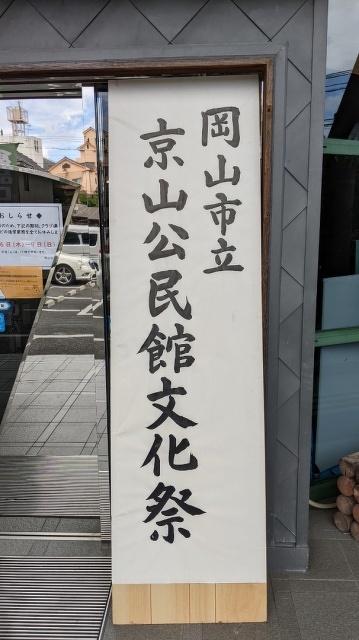 岡山市立
京山公民館文化祭
おしらせ◆